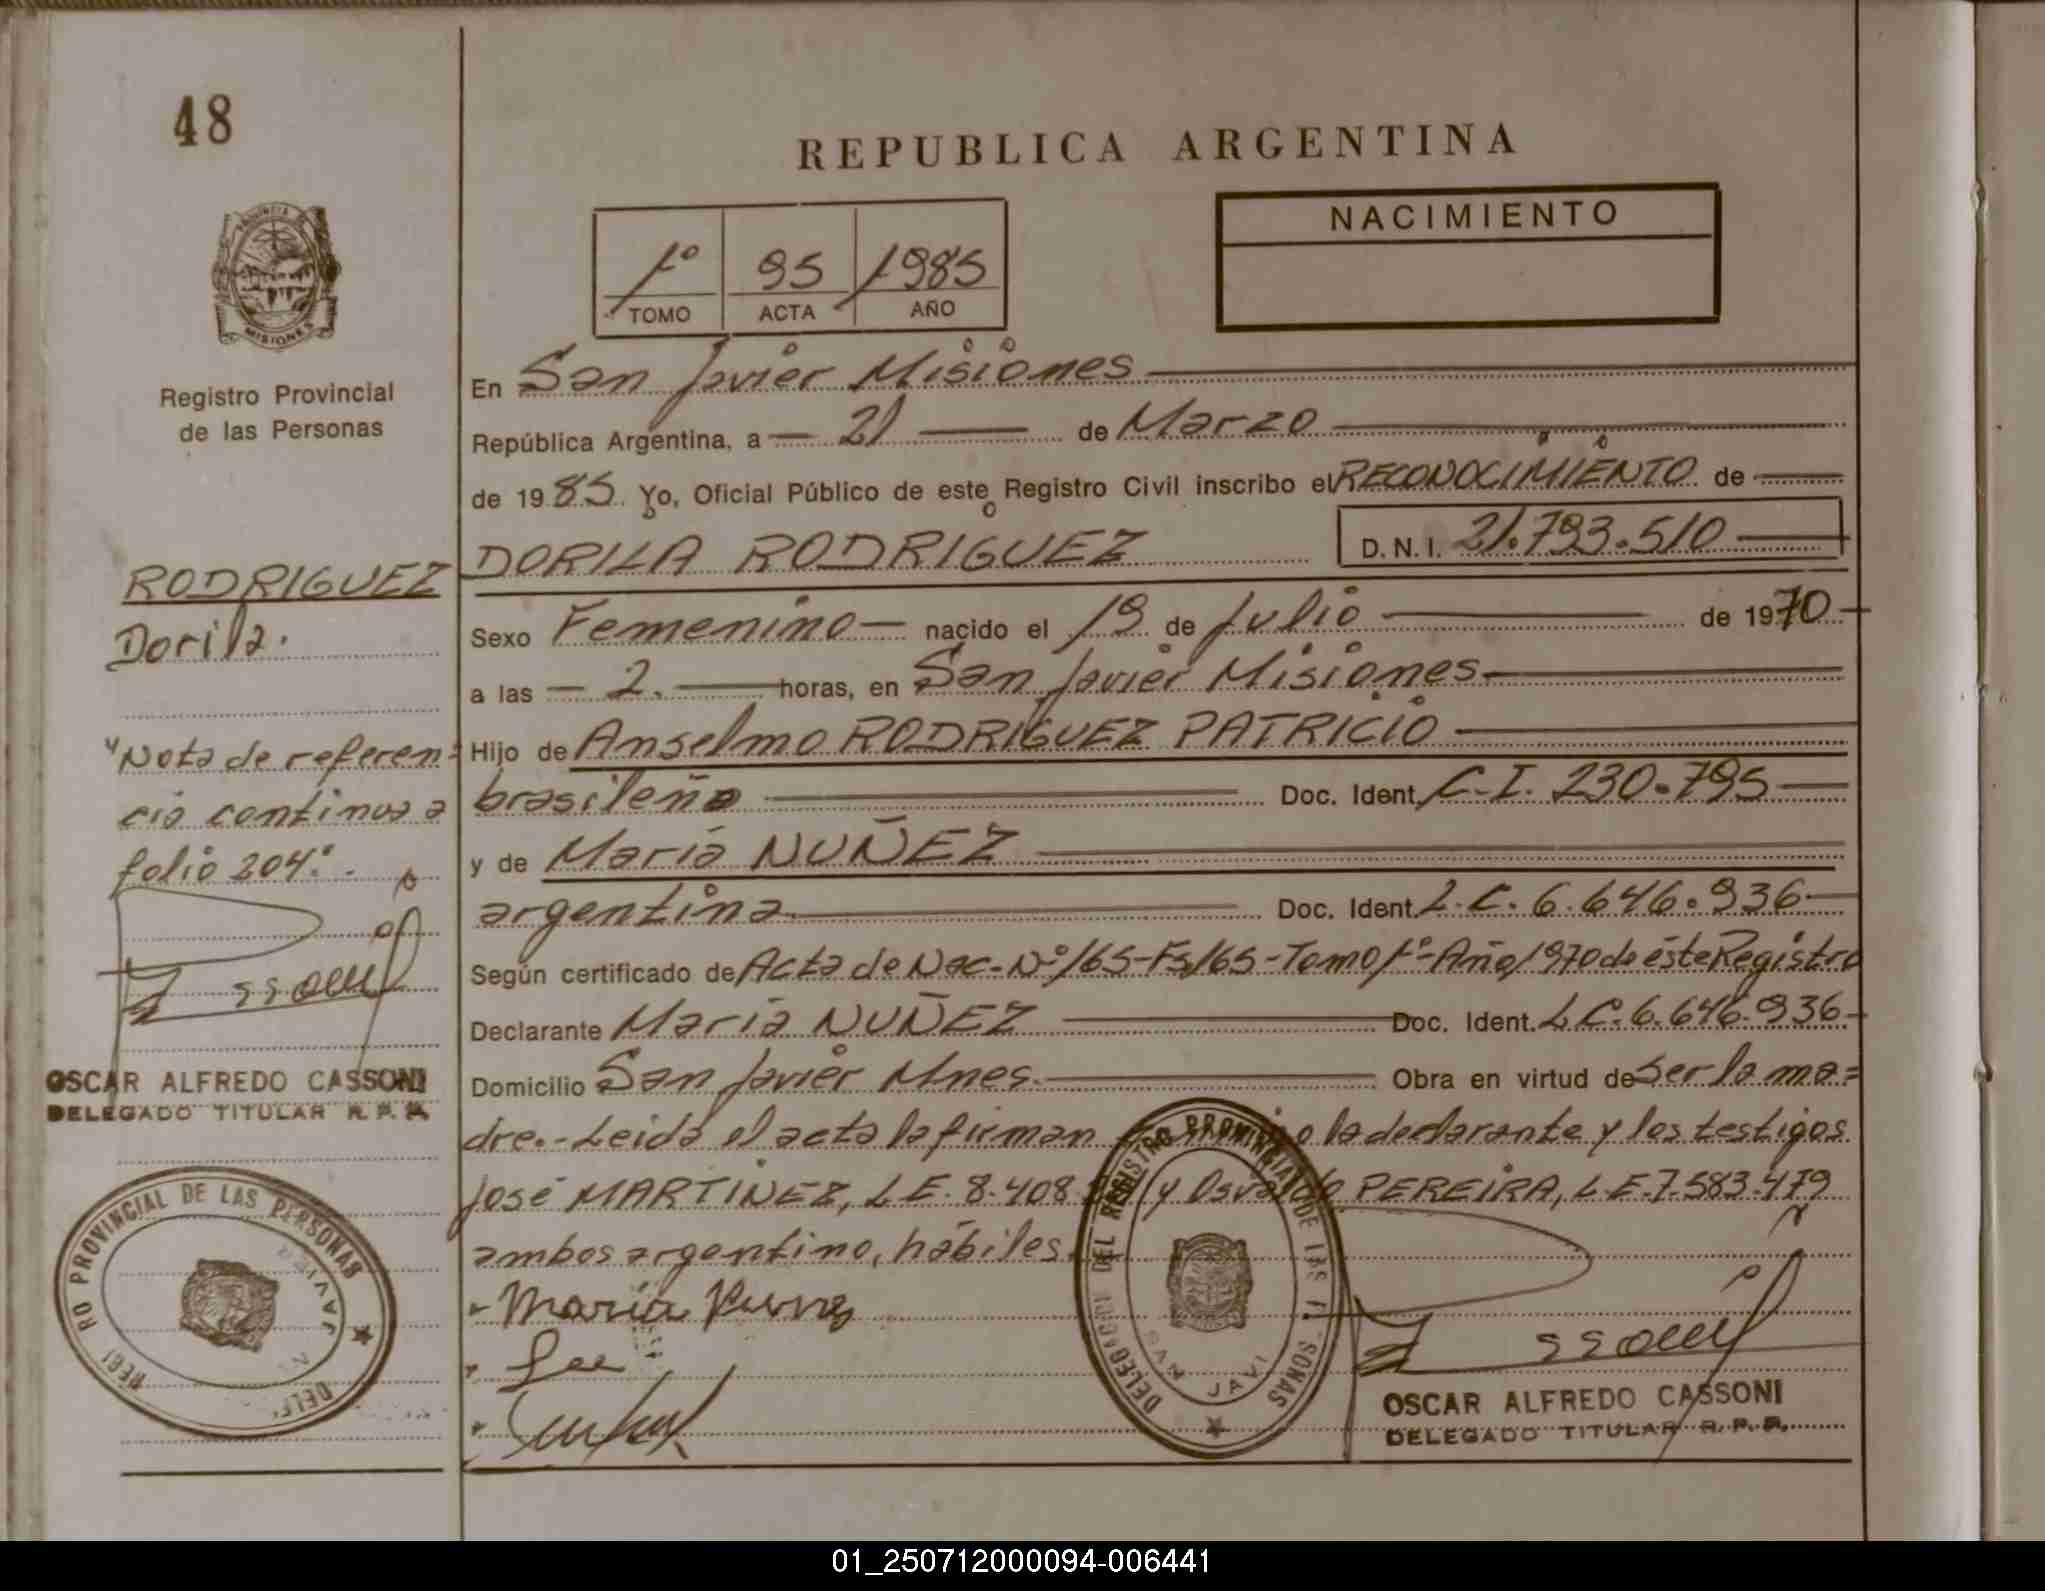 48
REPUBLICA ARGENTINA
1º 95 1985
TOMO ACTA AÑO
NACIMIENTO
MISIONES
Registro Provincial
de las Personas
RODRIGUEZ
Dorila.
"Nota de referen=
cia continua a
folio 204".-
OSCAR ALFREDO CASSONI
DELEGADO TITULAR R. P. P.
PROVINCIAL DE LAS PERSONAS
En San Javier Misiones
República Argentina, a 21 de Marzo
de 1985. Yo, Oficial Público de este Registro Civil inscribo el RECONOCIMIENTO de
DORILA RODRIGUEZ D.N.I. 21.793.510
Sexo Femenino nacido el 19 de Julio de 1970
a las 2. horas, en San Javier Misiones
Hijo de Anselmo RODRIGUEZ PATRICIO
brasileño Doc. Ident. C.I. 230.795
y de María NUÑEZ
argentina Doc. Ident. L.C. 6.646.936
Según certificado de Acta de Nac-Nº165-Fº165-Tomo1º-Año1970 de éste Registro
Declarante María NUÑEZ Doc. Ident. L.C. 6.646.936
Domicilio San Javier Mnes. Obra en virtud de Ser la ma=
dre.- Leida el acta la firman la declarante y los testigos
José MARTINEZ, L.E. 8.408. y Osvaldo PEREIRA, L.E. 7.583.479
ambos argentino, hábiles.
María
DEL REGISTRO PROVINCIAL DE
SAN JAVI
OSCAR ALFREDO CASSONI
DELEGADO TITULAR R. P. P.
01_250712000094-006441